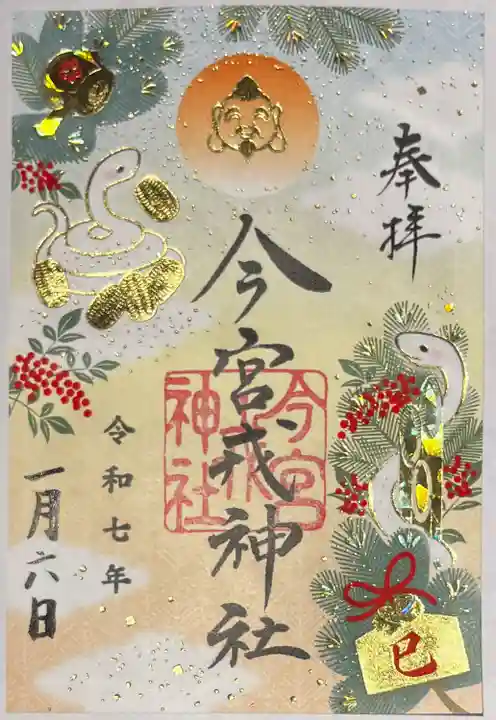 奉拝
今宮戎神社
今宮戎神社
令和七年
一月六日
巳